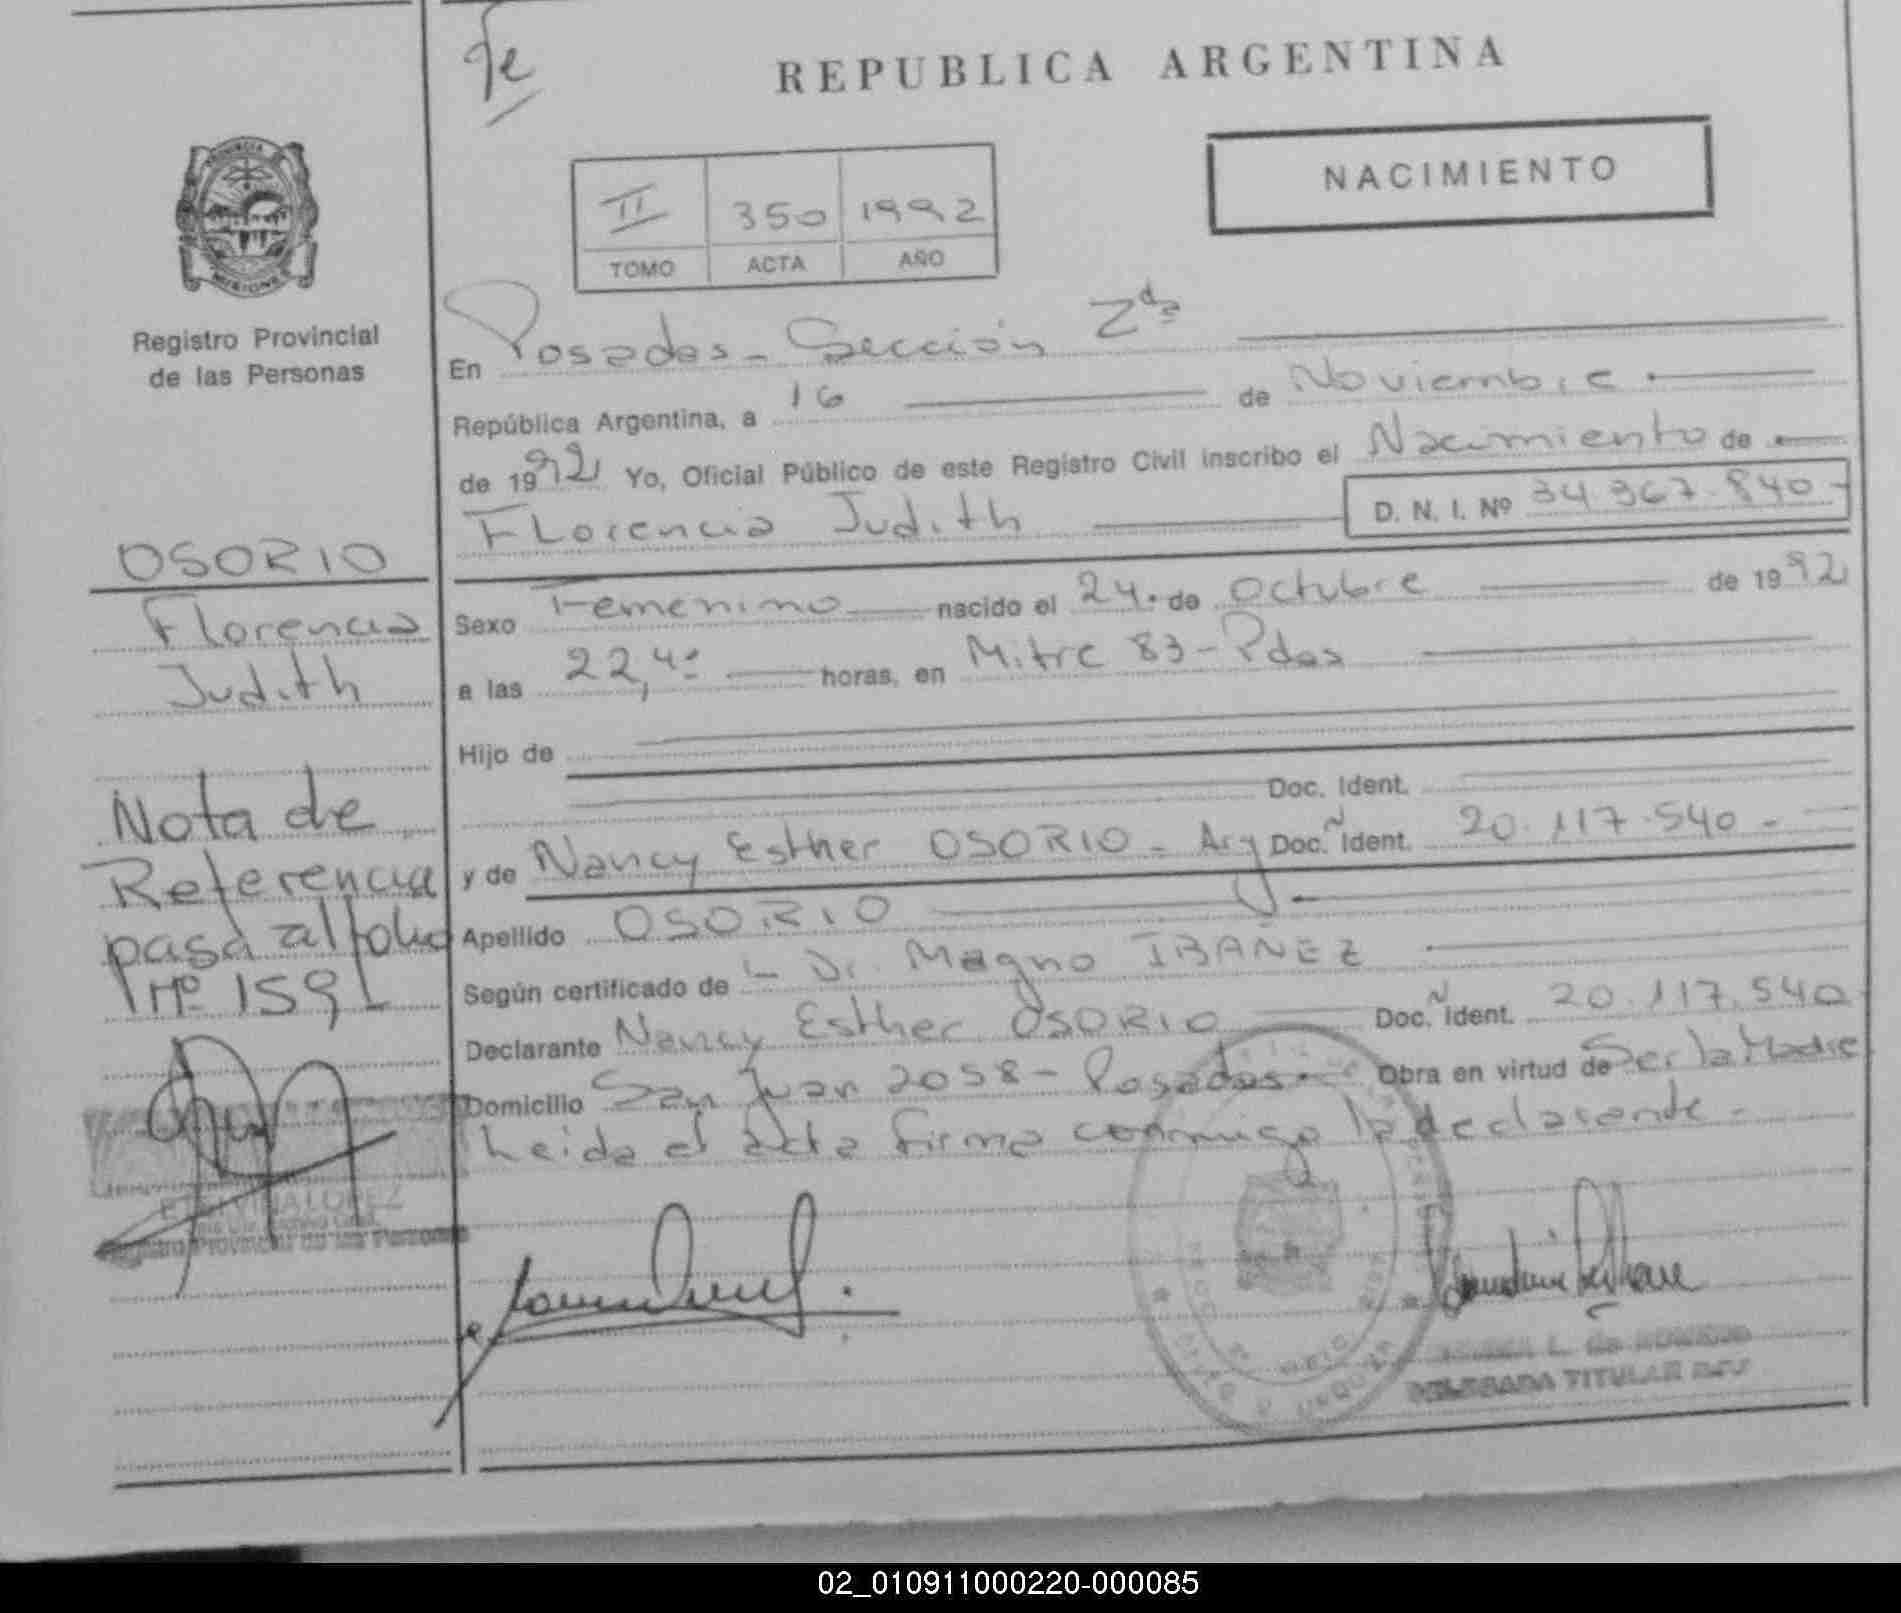 REPUBLICA ARGENTINA
NACIMIENTO
II 350 1992
TOMO ACTA AÑO
PROVINCIA
MISIONES
Registro Provincial
de las Personas
En Posadas - Sección 2da
República Argentina, a 16 de Noviembre
de 1992 Yo, Oficial Público de este Registro Civil inscribo el Nacimiento de
Florencia Judith D. N. I. Nº 34.367.840-
OSORIO
Florencia
Judith
Sexo Femenino nacido el 24. de Octubre de 1992
a las 22,4º horas, en Mitre 83 - Pdas
Hijo de
Doc. Ident.
y de Nancy Esther OSORIO - Arg Doc. Ident. 20.117.540 -
Apellido OSORIO
Según certificado de Dr. Magno IBAÑEZ
Declarante Nancy Esther OSORIO Doc. Ident. 20.117.540
Domicilio San Juan 2058 - Posadas - Obra en virtud de Ser la Madre
Leida el acta firma conmigo la declarante -
Nota de
Referencia
pasa al folio
Nº 159
LOPEZ
Registro Provincial de las Personas
DELEGADA TITULAR
02_010911000220-000085